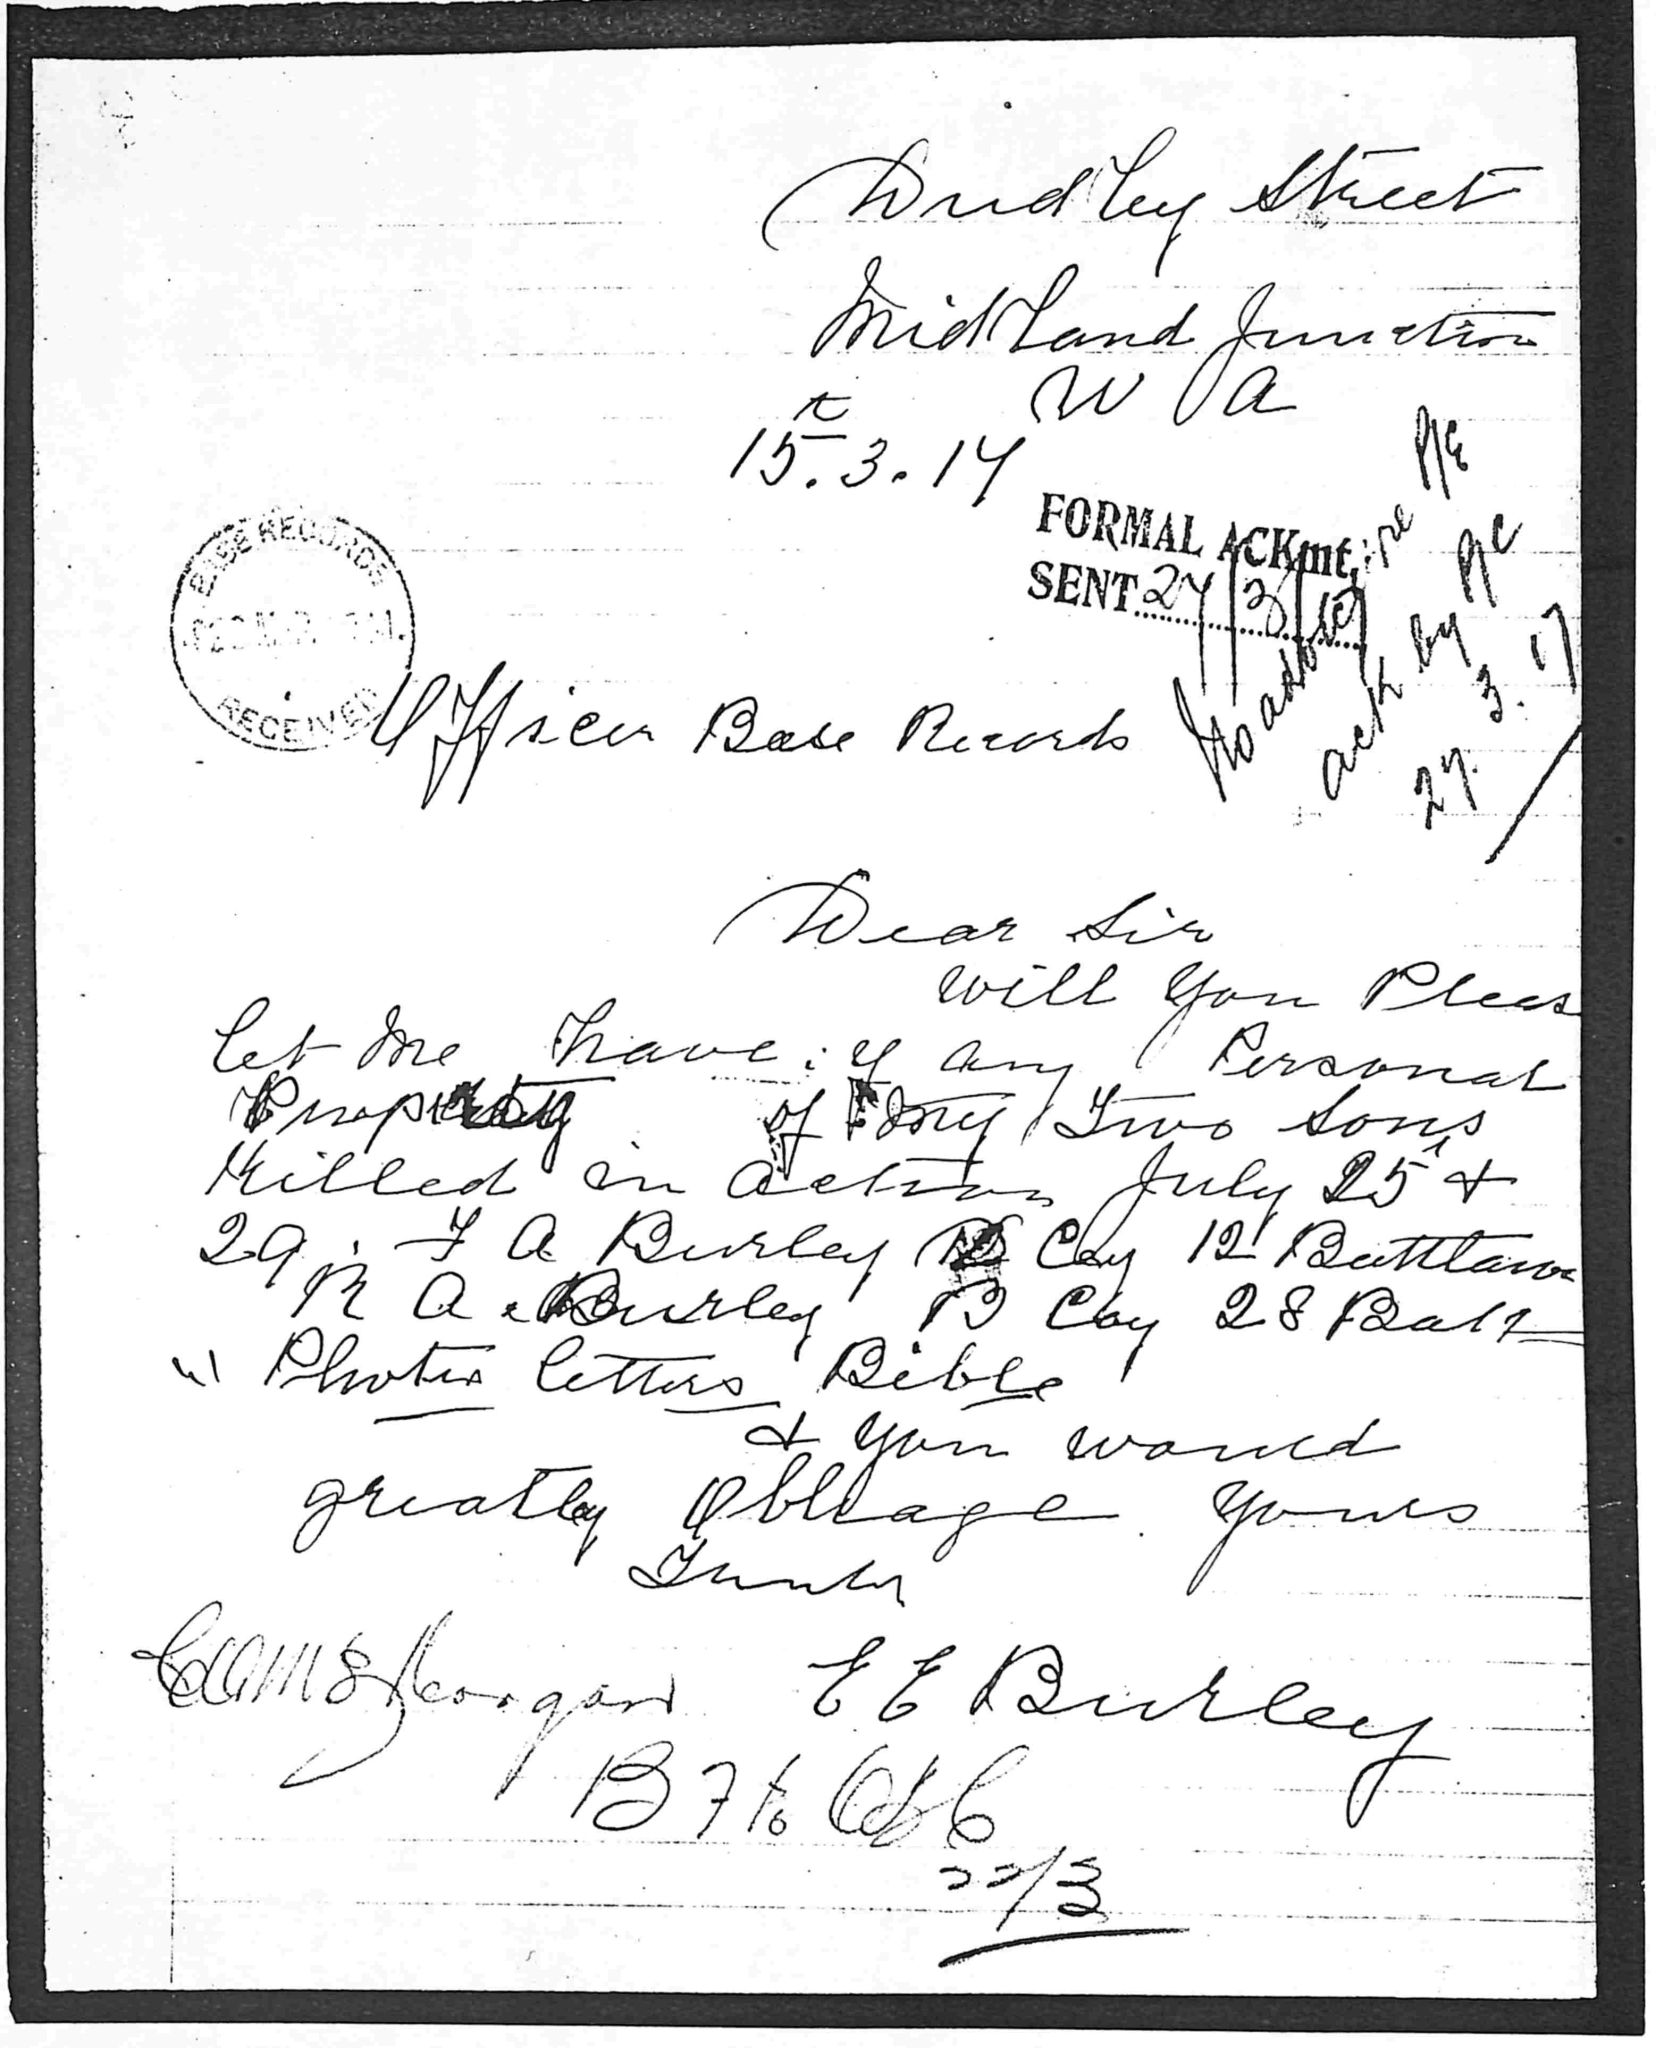 Dudley Street
Midland Junction
W A
15t.3.17
FORMAL ACKmt.
SENT 27/3/
ack by P/C
27.3.17
BASE RECORDS
RECEIVED
Officer Base Records
Dear Sir
Will You Pleas
let Me have if any Personal
Property of My Two Sons
Killed in action July 25 &
29. F A Burley Coy 12 Battlaion
R A. Burley B Coy 28 Batt
Photos letters Bible
& You would
greatly Obleage Yours
Truly
E E Burley
22/3